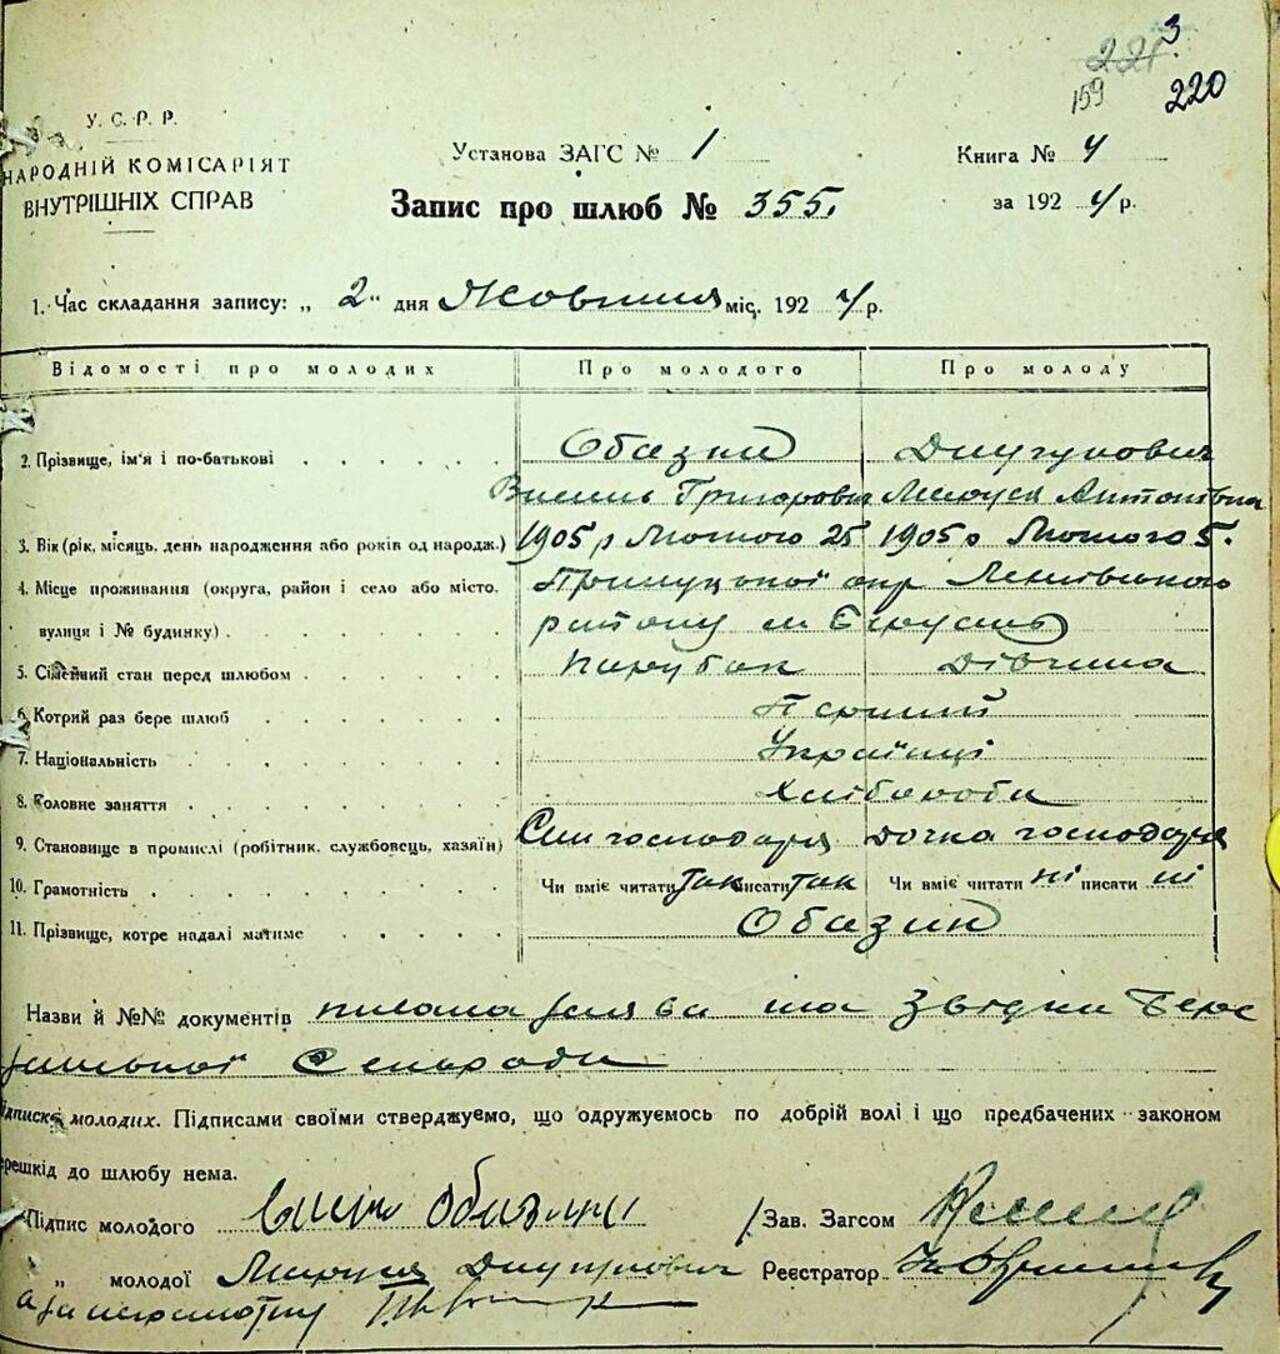 3
221.
159 220
У. С. Р. Р.
НАРОДНІЙ КОМІСАРІЯТ
ВНУТРІШНІХ СПРАВ
Установа ЗАГС № 1
Книга № 4
Запис про шлюб № 355.
за 1924 р.
1. Час складання запису: „ 2 " дня Жовтня міс. 1924 р.
Відомості про молодих Про молодого Про молоду
2. Прізвище, ім'я і по-батькові Обазин
Григорович Антонівна
3. Вік (рік, місяць, день народження або років од народж.) 1905 р Лютого 25 1905 р Лютого 5.
4. Місце проживання (округа, район і село або місто, Прилуцької окр
вулиця і № будинку) району
5. Сімейний стан перед шлюбом Парубок Дівчина
6. Котрий раз бере шлюб Перший
7. Національність Українці
8. Головне заняття Хлібороби
9. Становище в промислі (робітник, службовець, хазяїн) Син господаря Дочка господаря
10. Грамотність Чи вміє читати так писати так Чи вміє читати ні писати ні
11. Прізвище, котре надалі матиме Обазин
Назви й №№ документів заява та звідки
Сельради
ідписка молодих. Підписами своїми стверджуємо, що одружуємось по добрій волі і що предбачених законом
ерешкід до шлюбу нема.
Підпис молодого
Зав. Загсом
„ молодої
Реєстратор
а за неграмотну